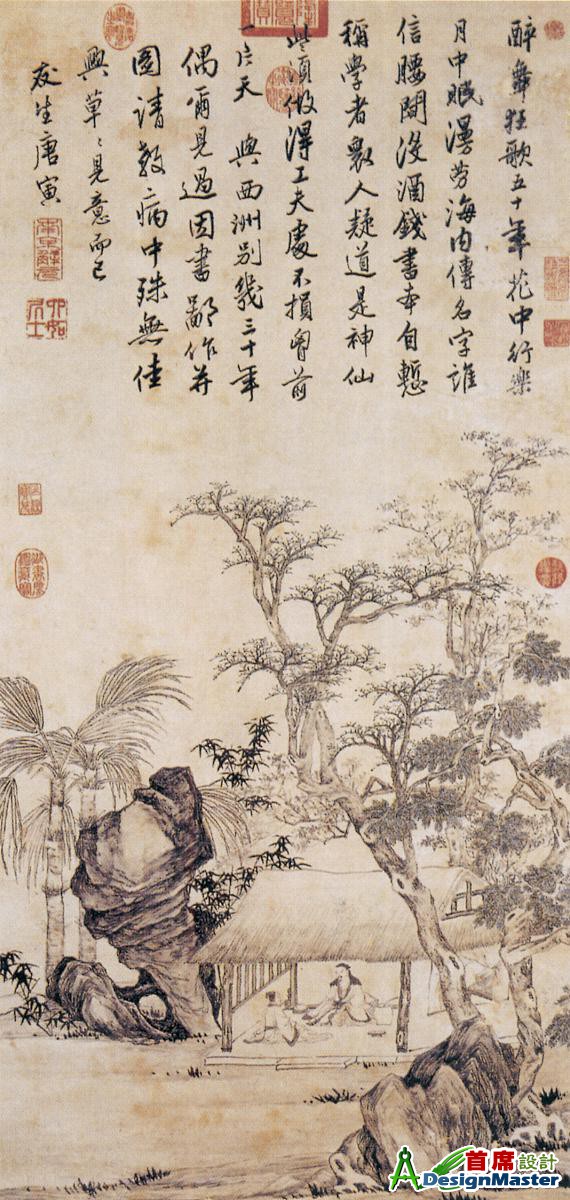 醉舞狂歌五十年花中行樂
月中眠漫勞海內傳名字誰
信腰間沒酒錢書本自慙
稱學者眾人疑道是神仙
些須做得工夫處不損胷前
一片天 與西洲別幾三十年
偶爾見過因書鄙作并
圖請教病中殊無佳
興草〻見意而已
友生唐寅
南京解元
六如居士
首席設計
DesignMaster